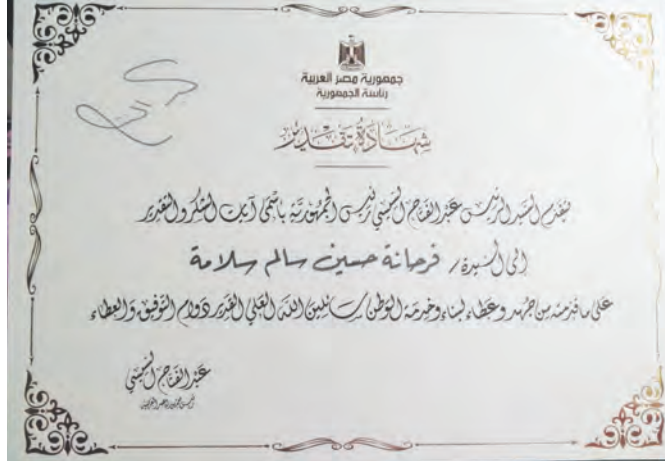 جمهورية مصر العربية
رئاسة الجمهورية
شهادة تقدير
يتقدم السيد الرئيس عبد الفتاح السيسي رئيس الجمهورية بأسمى آيات الشكر والتقدير
إلى السيدة / فرحانة حسين سالم سلامة
على ما قدمته من جهد وعطاء لبناء وخدمة الوطن سائلين الله العلي القدير دوام التوفيق والعطاء
عبد الفتاح السيسي
رئيس جمهورية مصر العربية